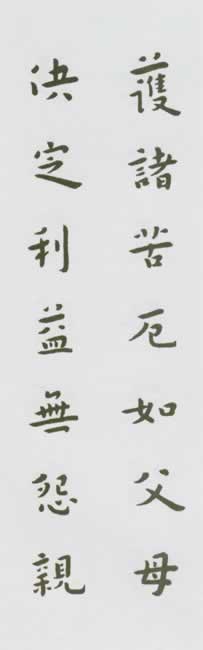 護諸苦厄如父母
決定利益無怨親